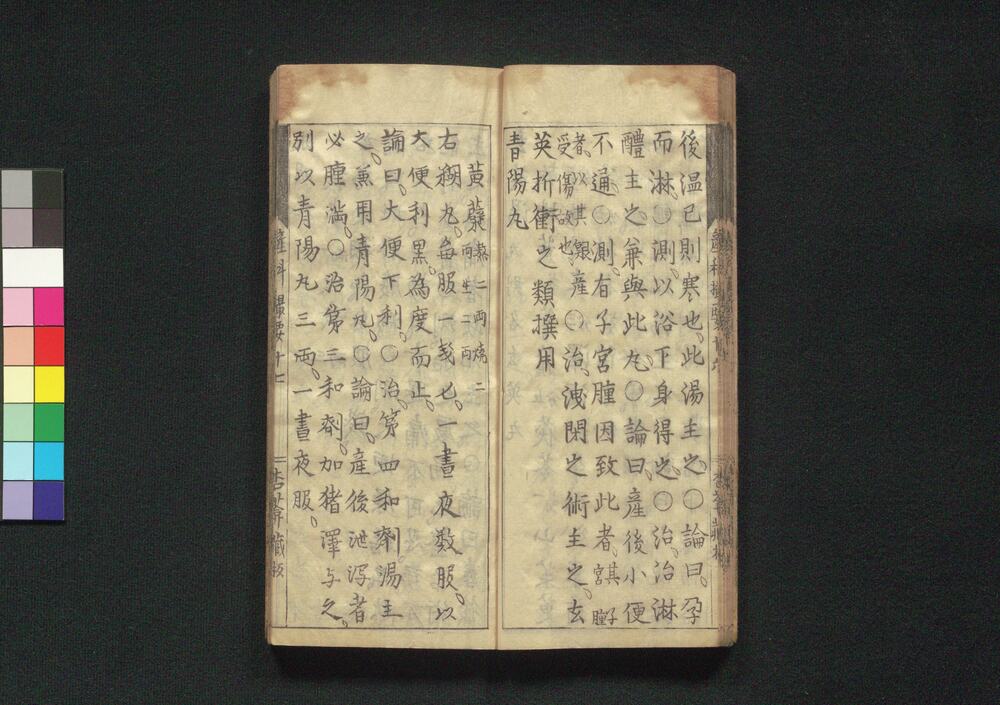 後温已則寒也此湯主之〇論曰孕
而淋〇測以浴下身得之〇治治淋
醴主之兼與此丸〇論曰產後小便
不通〇測有子宮腫因致此者其子宮腫
者以其銀
受傷故也產〇治洩閉之術主之玄
英折衝之類撰用
青陽丸
黃蘗熬二兩 生二兩 二
右糊丸每服一戔匕一晝夜数服以
大便利黑為度而止
論曰大便下利〇治第四和劑湯主
之兼用青陽丸〇論曰產後泄瀉者
必腫満〇治第三和劑加猪澤与之
別以青陽丸三兩一晝夜服